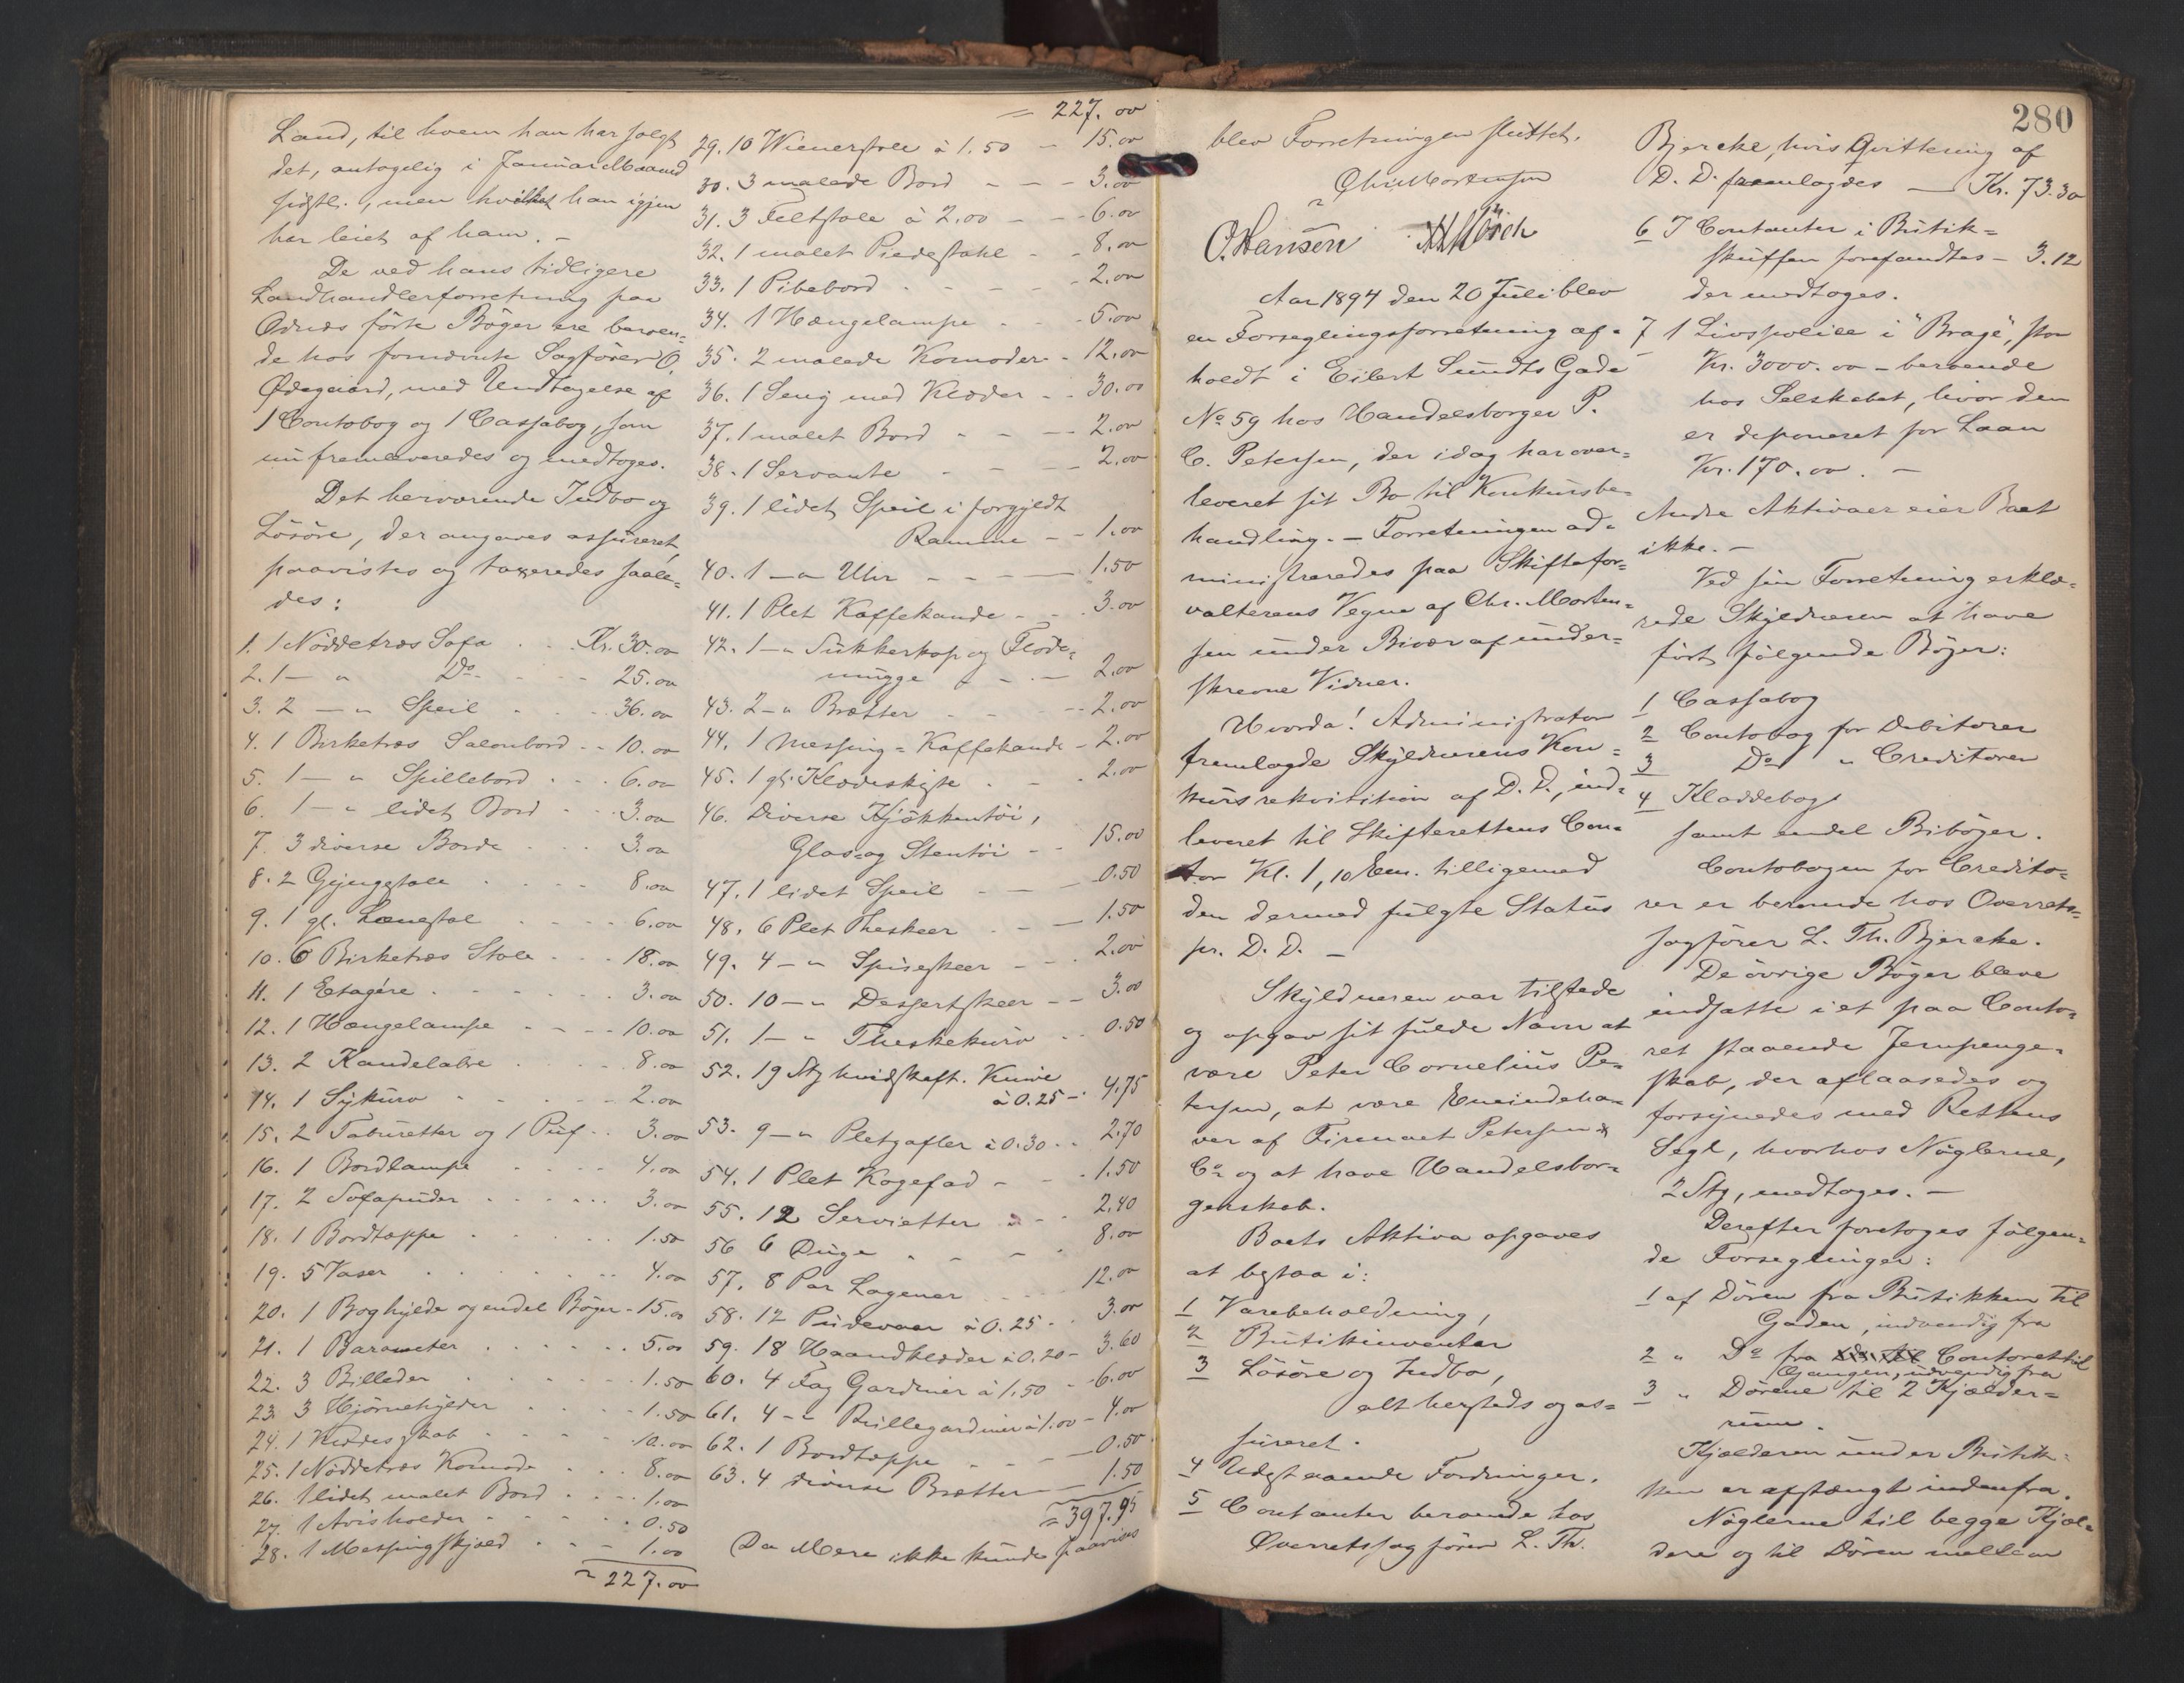 Land, til hvem han har solgt
det, antagelig i Januar Maaned
sidstl., men hvilket han igjen
har leiet af ham. –
De ved hans tidligere
Landhandlerforretning paa
Odnæs förte Böger ere beroen=
de hos fornævnte Sagförer O.
Ödegaard, med Undtagelse af
1 Contobog og 1 Cassabog, som
nu fremleveredes og medtoges.
Det herværende Indbo og
Lösöre, der angaves assureret,
paavistes og taxeredes saale=
des:
1. 1 Nöddetræs Sofa . . Kr. 30.00
2. 1 — " Do. - - - 25.00
3. 2 — " Speil - - - 36.00
4. 1 Birketræs Salonbord - - 10.00
5. 1 — " Spillebord - - - 6.00
6. 1 — " lidet Bord - - 3.00
7. 3 diverse Borde - - - 3.00
8. 2 Gyngestole - - - - 8.00
9. 1 gl. Lænestol - - - - 6.00
10. 6 Birketræs Stole - - - 18.00
11. 1 Etagére - - - - - 3.00
12. 1 Hængelampe - - - - 10.00
13. 2 Kandelabre - - - - 8.00
14. 1 Sykurv - - - - - 2.00
15. 2 Taburetter og 1 Puf - - 3.00
16. 1 Bordlampe - - - - 4.00
17. 2 Sofapuder - - - - - 3.00
18. 1 Bordteppe - - - - - 1.50
19. 5 Vaser - - - - - - 4.00
20. 1 Boghylde og endel Böger - 15.00
21. 1 Barometer - - - - - 5.00
22. 3 Billeder - - - - - 1.50
23. 3 Hjörnehylder - - - - 1.50
24. 1 Klædesskab - - - - 10.00
25. 1 Nöddetræs Komode - - - 8.00
26. 1 lidet malet Bord - - - 1.00
27. 1 Avisholder - - - - - 0.50
28. 1 Messingskjold - - - 1.00
= 227.00
= 227.00
29. 10 Wienerstole à 1.50 - 15.00
30. 3 malede Bord - - - 3.00
31. 3 Feltstole à 2.00 - - - 6.00
32. 1 malet Piedestahl - - 8.00
33. 1 Pibebord - - - - - 2.00
34. 1 Hængelampe - - - 5.00
35. 2 malede Komoder - - 12.00
36. 1 Seng med Klæder - - 30.00
37. 1 malet Bord - - - - 2.00
38. 1 Servante - - - - 2.00
39. 1 lidet Speil i forgyldt
Ramme - - 1.00
40. 1 — " Uhr - - - - 1.50
41. 1 Plet Kaffekande - - - 3.00
42. 1 — " Sukkerkop og Flöde=
mugge - - - - 2.00
43. 2 — " Brætter - - - - 2.00
44. 1 Messing=Kaffekande - 2.00
45. 1 gl. Klædeskiste - - - 2.00
46. Diverse Kjökkentöi,
Glas og Stentöi - - 15.00
47. 1 lidet Speil - - - 0.50
48. 6 Plet Theskeer - - - 1.50
49. 4 — " Spiseskeer - - - 2.00
50. 10 — " Dessertskeer - - 3.00
51. 1 — " Theskekurv - - 0.50
52. 19 Stk hvidskaft. Knive
à 0.25 - 4.75
53. 9 — " Pletgafler à 0.30 - - 2.70
54. 1 Plet Kagefad - - - 1.50
55. 12 Servietter - - - 2.40
56 6 Duge - - - - 8.00
57. 8 Par Lagener - - - - 12.00
58. 12 Pudevaar à 0.25 - - 3.00
59. 18 Haandklæder à 0.20 - 3.60
60. 4 Fag Gardiner à 1.50 - 6.00
61. 4 — " Rullegardiner à 1.00 - 4.00
62. 1 Bordteppe - - - - 0.50
63. 4 diverse Brætter - 1.50
= 397.95
Da Mere ikke kunde paavises
280
blev Forretningen sluttet.
Chr. Mortensen
O. Hansen
Aar 1894 den 20 Juli blev
en Forseglingsforretning af=
holdt i Eilert Sundts Gade
No 59 hos Handelsborger P.
C. Petersen, der idag har over=
leveret sit Bo til Konkursbe=
handling. – Forretningen ad=
ministreredes paa Skiftefor=
valterens Vegne af Chr. Morten=
sen under Bivær af under=
skrevne Vidner.
Hvorda! Administrator
fremlagde Skyldnerens Kon=
kursrekvisition af D. D., ind=
leveret til Skifterettens Con=
tor Kl. 1,10 Em. tilligemed
den dermed fulgte Status
pr. D. D. –
Skyldneren var tilstede
og opgav sit fulde Navn at
være Peter Cornelius Pe=
tersen, at være Eneindeha=
ver af Firmaet Petersen &
Co og at have Handelsbor=
gerskab.
Boets Aktiva opgaves
at bestaa i:
1 Varebeholdning,
2 Butikinventar
3 Lösöre og Indbo,
alt hersteds og as=
sureret.
4 Udestaaende Fordringer.
5 Contanter beroende hos
Overretssagförer L. Th.
Bjercke, hvis Qvittering af
D. D. fremlagdes — Kr. 73.30
6 I Contanter i Butik=
skuffen forefandtes – 3.12
der medtoges.
7 1 Livspolice i "Brage", stor
Kr. 3000.00 – beroende
hos Selskabet, hvor den
er deponeret for Laan
Kr. 170.00. –
Andre Aktiver eier Boet
ikke. –
Ved sin Forretning erklæ=
rede Skyldneren at have
fört fölgende Böger:
1 Cassabog
2 Contobog for Debitorer
3 Do " Creditorer
4 Kladdebog
samt endel Biböger.
Contobogen for Credito=
rer er beroende hos Overrets=
sagförer L. Th. Bjercke.
De övrige Böger bleve
indsatte i et paa Conto=
ret staaende Jernpenge=
skab, der aflaasedes og
forsynedes med Rettens
Segl, hvorhos Nöglerne,
2 Stk, medtoges. –
Derefter foretoges fölgen=
de Forseglinger:
1 af Dören fra Butikken til
Gaden, indvendig fra
2 " Do fra Contoret til
Gangen, udvendig fra
3 " Dörene til 2 Kjælder=
rum.
Kjælderen under Butik=
ken er afstængt indenfra.
Nöglerne til begge Kjæl=
dere og til Dören mellem